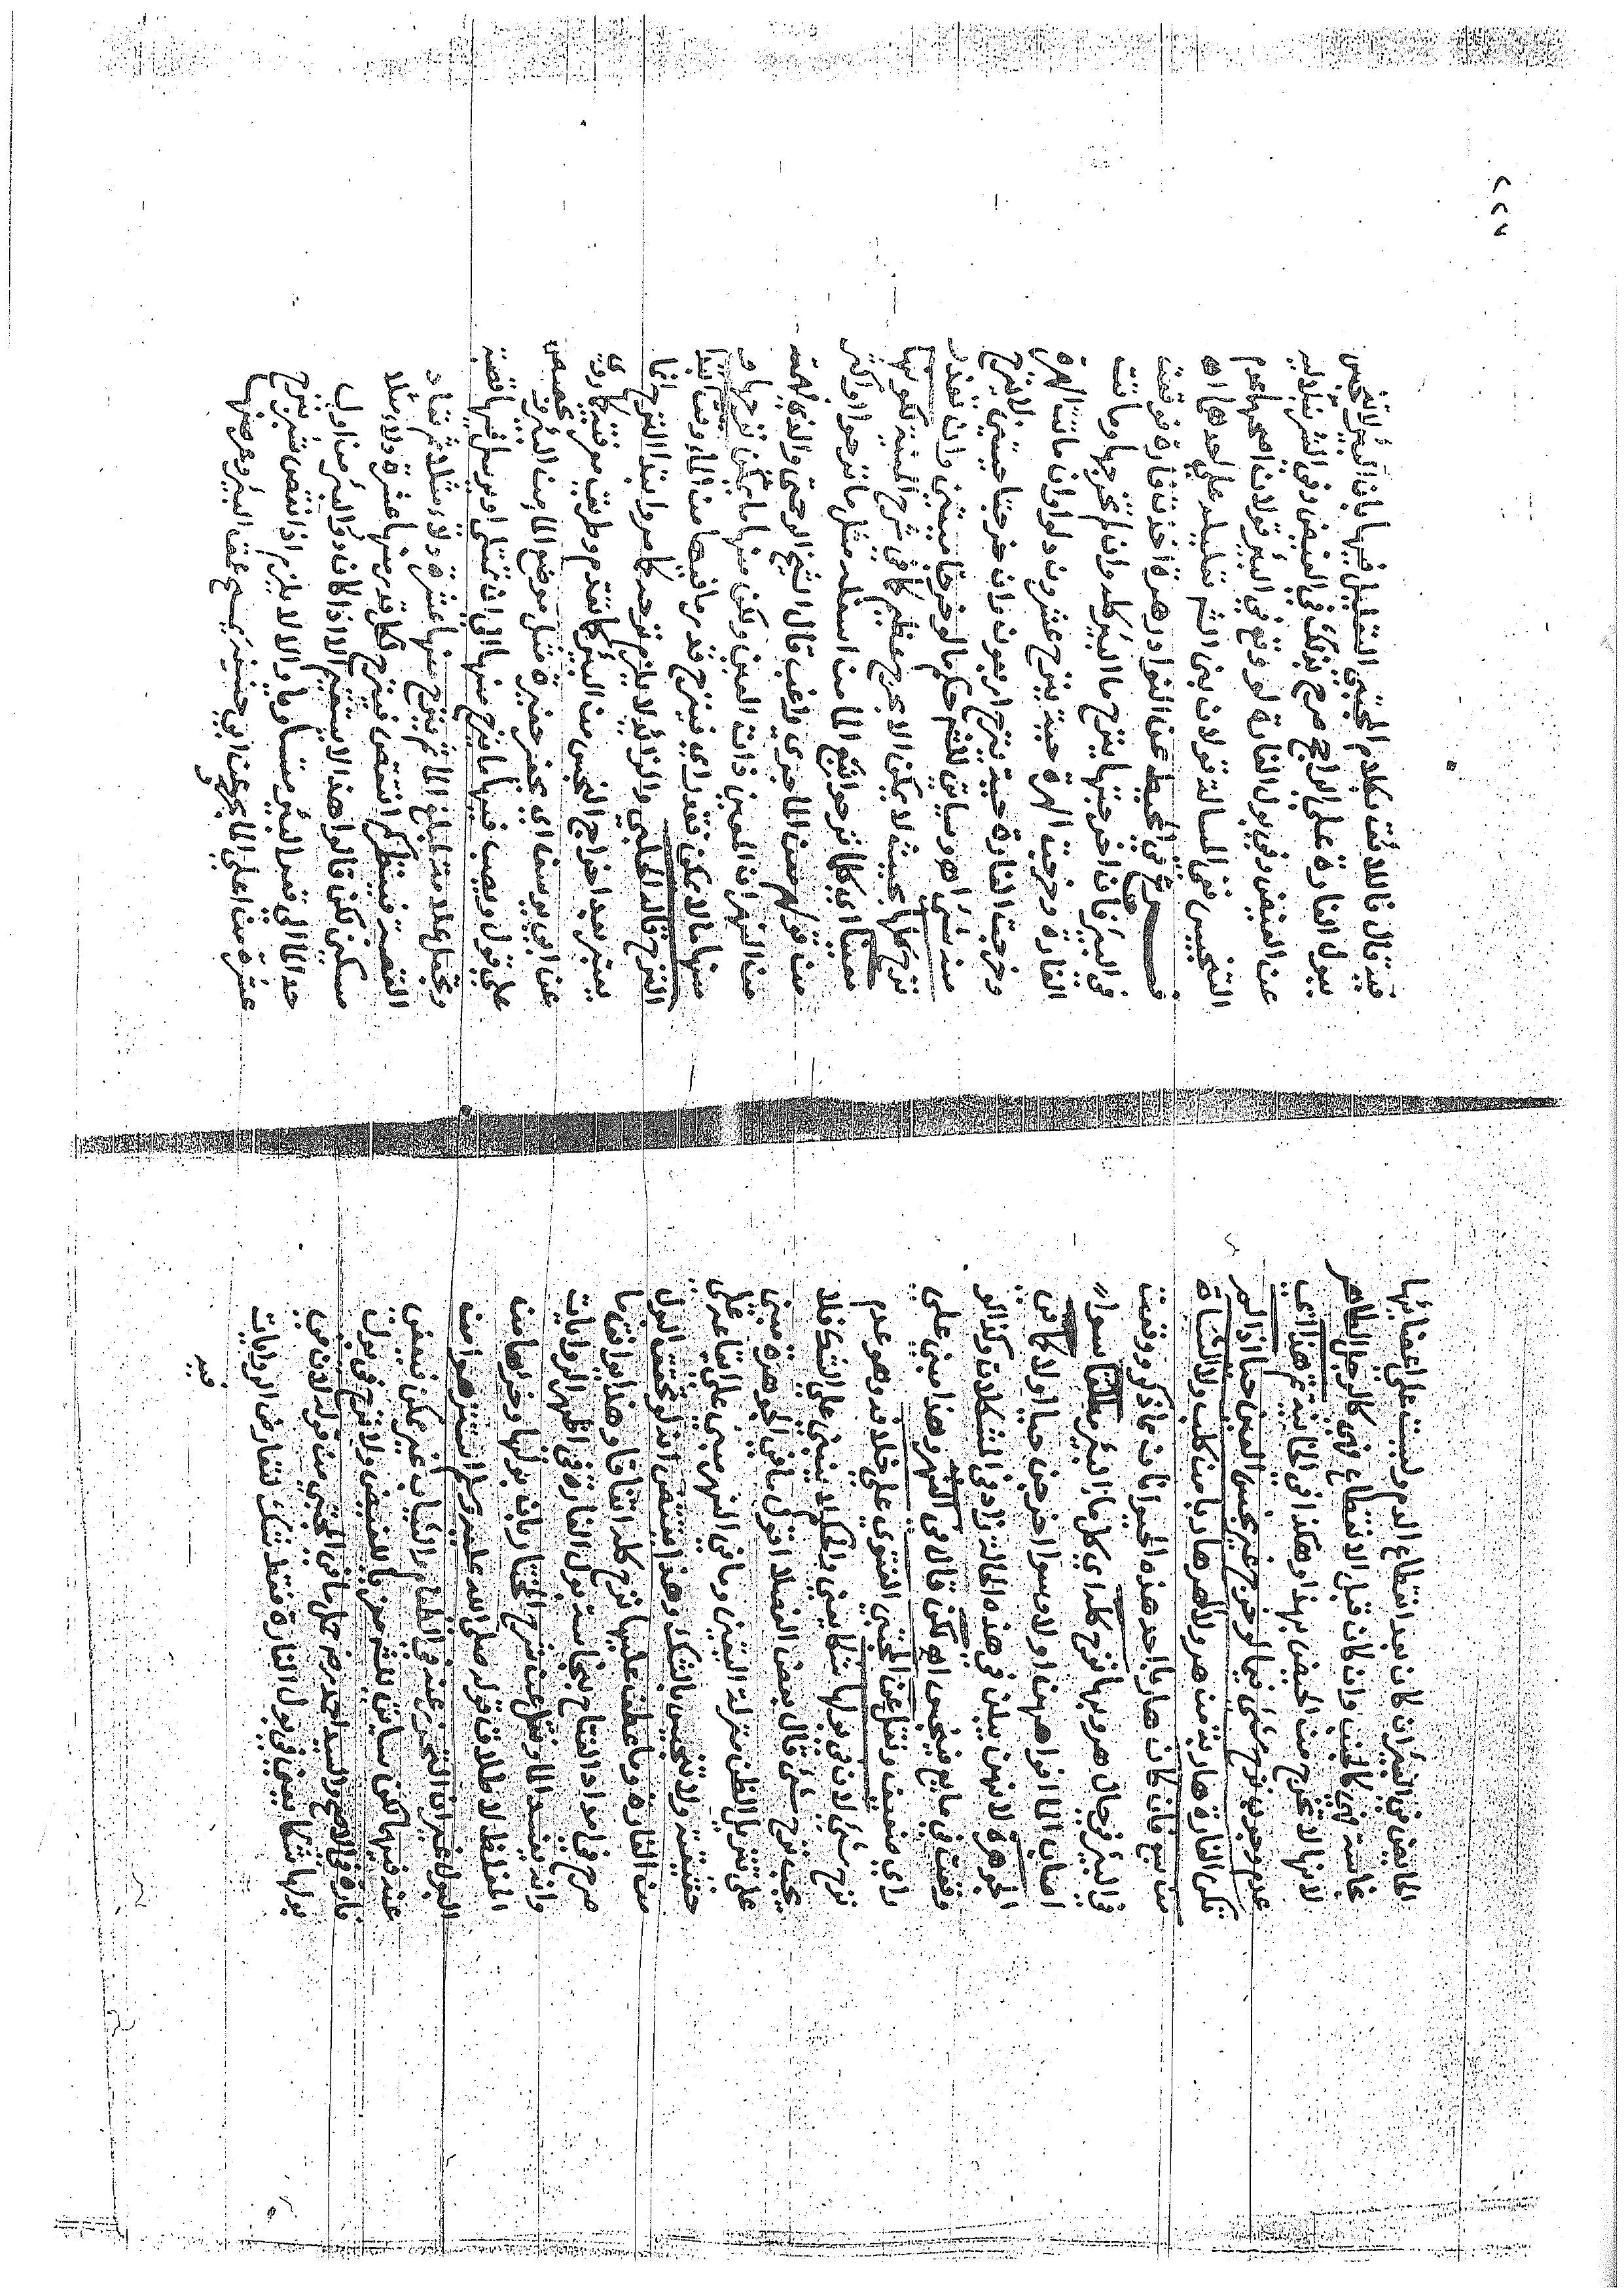 الحايض في البئر ان كان بعد انقطاع الدم وليست على اعضائها
نجاسة فهي كالجنب وان كان قبل الانقطاع فهي كالرجل الطاهر
لانها لا تخرج من الحيض بهذا وهكذا في الخانية ثم هذا اي
عدم وجوب نزح شيء فيما لو خرج غير نجس العين حيا اذا لم
تكن الفارة هاربة من هر والهر هاربا من كلب ولا الشاة
من سبع فان كان هاربا احد هذه الحيوانات عما ذكر ووقعت
في البئر في حال هروبها نزح كله اي كل ماء البئر مطلقا سواء
اصاب الماء افواههن او لا وسواء خرجن حيا او لا كما في
الجوهرة لانهن يبلن في هذه الحالة زاد في المشكلات وكذا لو
وقعت في مايع فينجس اه لكن قال في النهر وهذا مبني على
راي ضعيف ونقل عن المجتبى الفتوى على خلافه وهو عدم
نزح شيء لان في بولها شكا يعني والحكم لا ينبني على الشك فلا
يجب نزح شيء قال بعض الفضلا اقول ما في الجوهرة مبني
على تنزيل الظن منزلة اليقين وما في النهر مبني على
حقيقته ولا تنجيس بالشك وهذا يقتضي انه لو تحقق البول
من الفارة وما عطف عليها نزح كله اتفاقا وهذا يوافق ما
صرح في امداد الفتاح بنجاسة بول الفارة في اظهر الروايات
وانه يفسد الماء ونقل عن شرح المختار بان بولها وخرءها من
المغلظ لاطلاق قوله صلى الله عليه وسلم استنزهوا من
البول غير ان التحرز عنه في الطعام والثياب غير ممكن فيعفى
عنه فيهما لكن سياتي للشم معزيا للفيض ولا نزح في بول
فارة في الاصح والسيد احمد حكى ما في المجتبى من قوله لان في
بولها شكا يعني في بول الفارة فقط شك لتعارض الروايات
فيه
فيه قال فاللائق بكلام المجتبى التعليل فيها بان البئر لا تنجس
ببول الفارة على الراجح صرح بذلك في الفيض وفي الشرنبلالية
عن الفيض وفي بول الفارة لو وقع في البئر قولان اصحهما عدم
التنجيس ففي المسالة قولان بنى الشم تعليله على احدهما اه
فرع في المحيط عن النوادر هرة اخذت فارة فوقعت
في البئر فان اخرجتها ينزح ماء البئر كله وان لم تخرجها وماتت
الفارة وخرجت الهرة حية ينزح عشرون دلوا وان ماتت الهرة
وخرجت الفارة حية ينزح اربعون وان خرجتا حيتين لا ينزح
منه شيء اه وسياتي للشم حكم ما لو خرجتا ميتتين وان تعذر
نزح كلها بحيث لا يمكن الا بحرج عظيم كما في شرح المنية لكونها
معينا اي كلما نزحوا نبع الماء من اسفله مثل ما نزحوا او اكثر
من قولهم معن الماء جرى قال الشيخ الرحمتي والذي نفهمه
من النهر ان المعين ذات العين ولكن منها ما يمكن نزحها و
منها ما لا يمكن فينزح قدر ما فيها من الماء وقت ابتداء
النزح قاله الحلبي والزائد لا يلزم نزحه كما مر وابتداء النزح انما
يعتبر بعد اخراج النجس من البئر كما تقدم وطريق معرفته كما روي
عن ابي يوسف اي بحفر حفيرة مثل موضع الماء من البئر وتجصص
على قول ويصب فيها ما ينزح منها الى ان تمتلئ او يرسل فيها قصبة
ويجعل علامة لمبلغ الماء ثم ينزح منها عشرة دلاء مثلا ثم تعاد
القصبة فينظر كم انتقص فينزح لكل قدر منها عشرة دلاء مثلا
مسكين لكن قالوا هذا لا يستقيم الا اذا كان دور البئر من اول
حد الماء الى قعر البئر متساويا والا لا يلزم اذا انتقص شبر بنزح
عشرة من اعلى الماء عمق البئر وعرضها